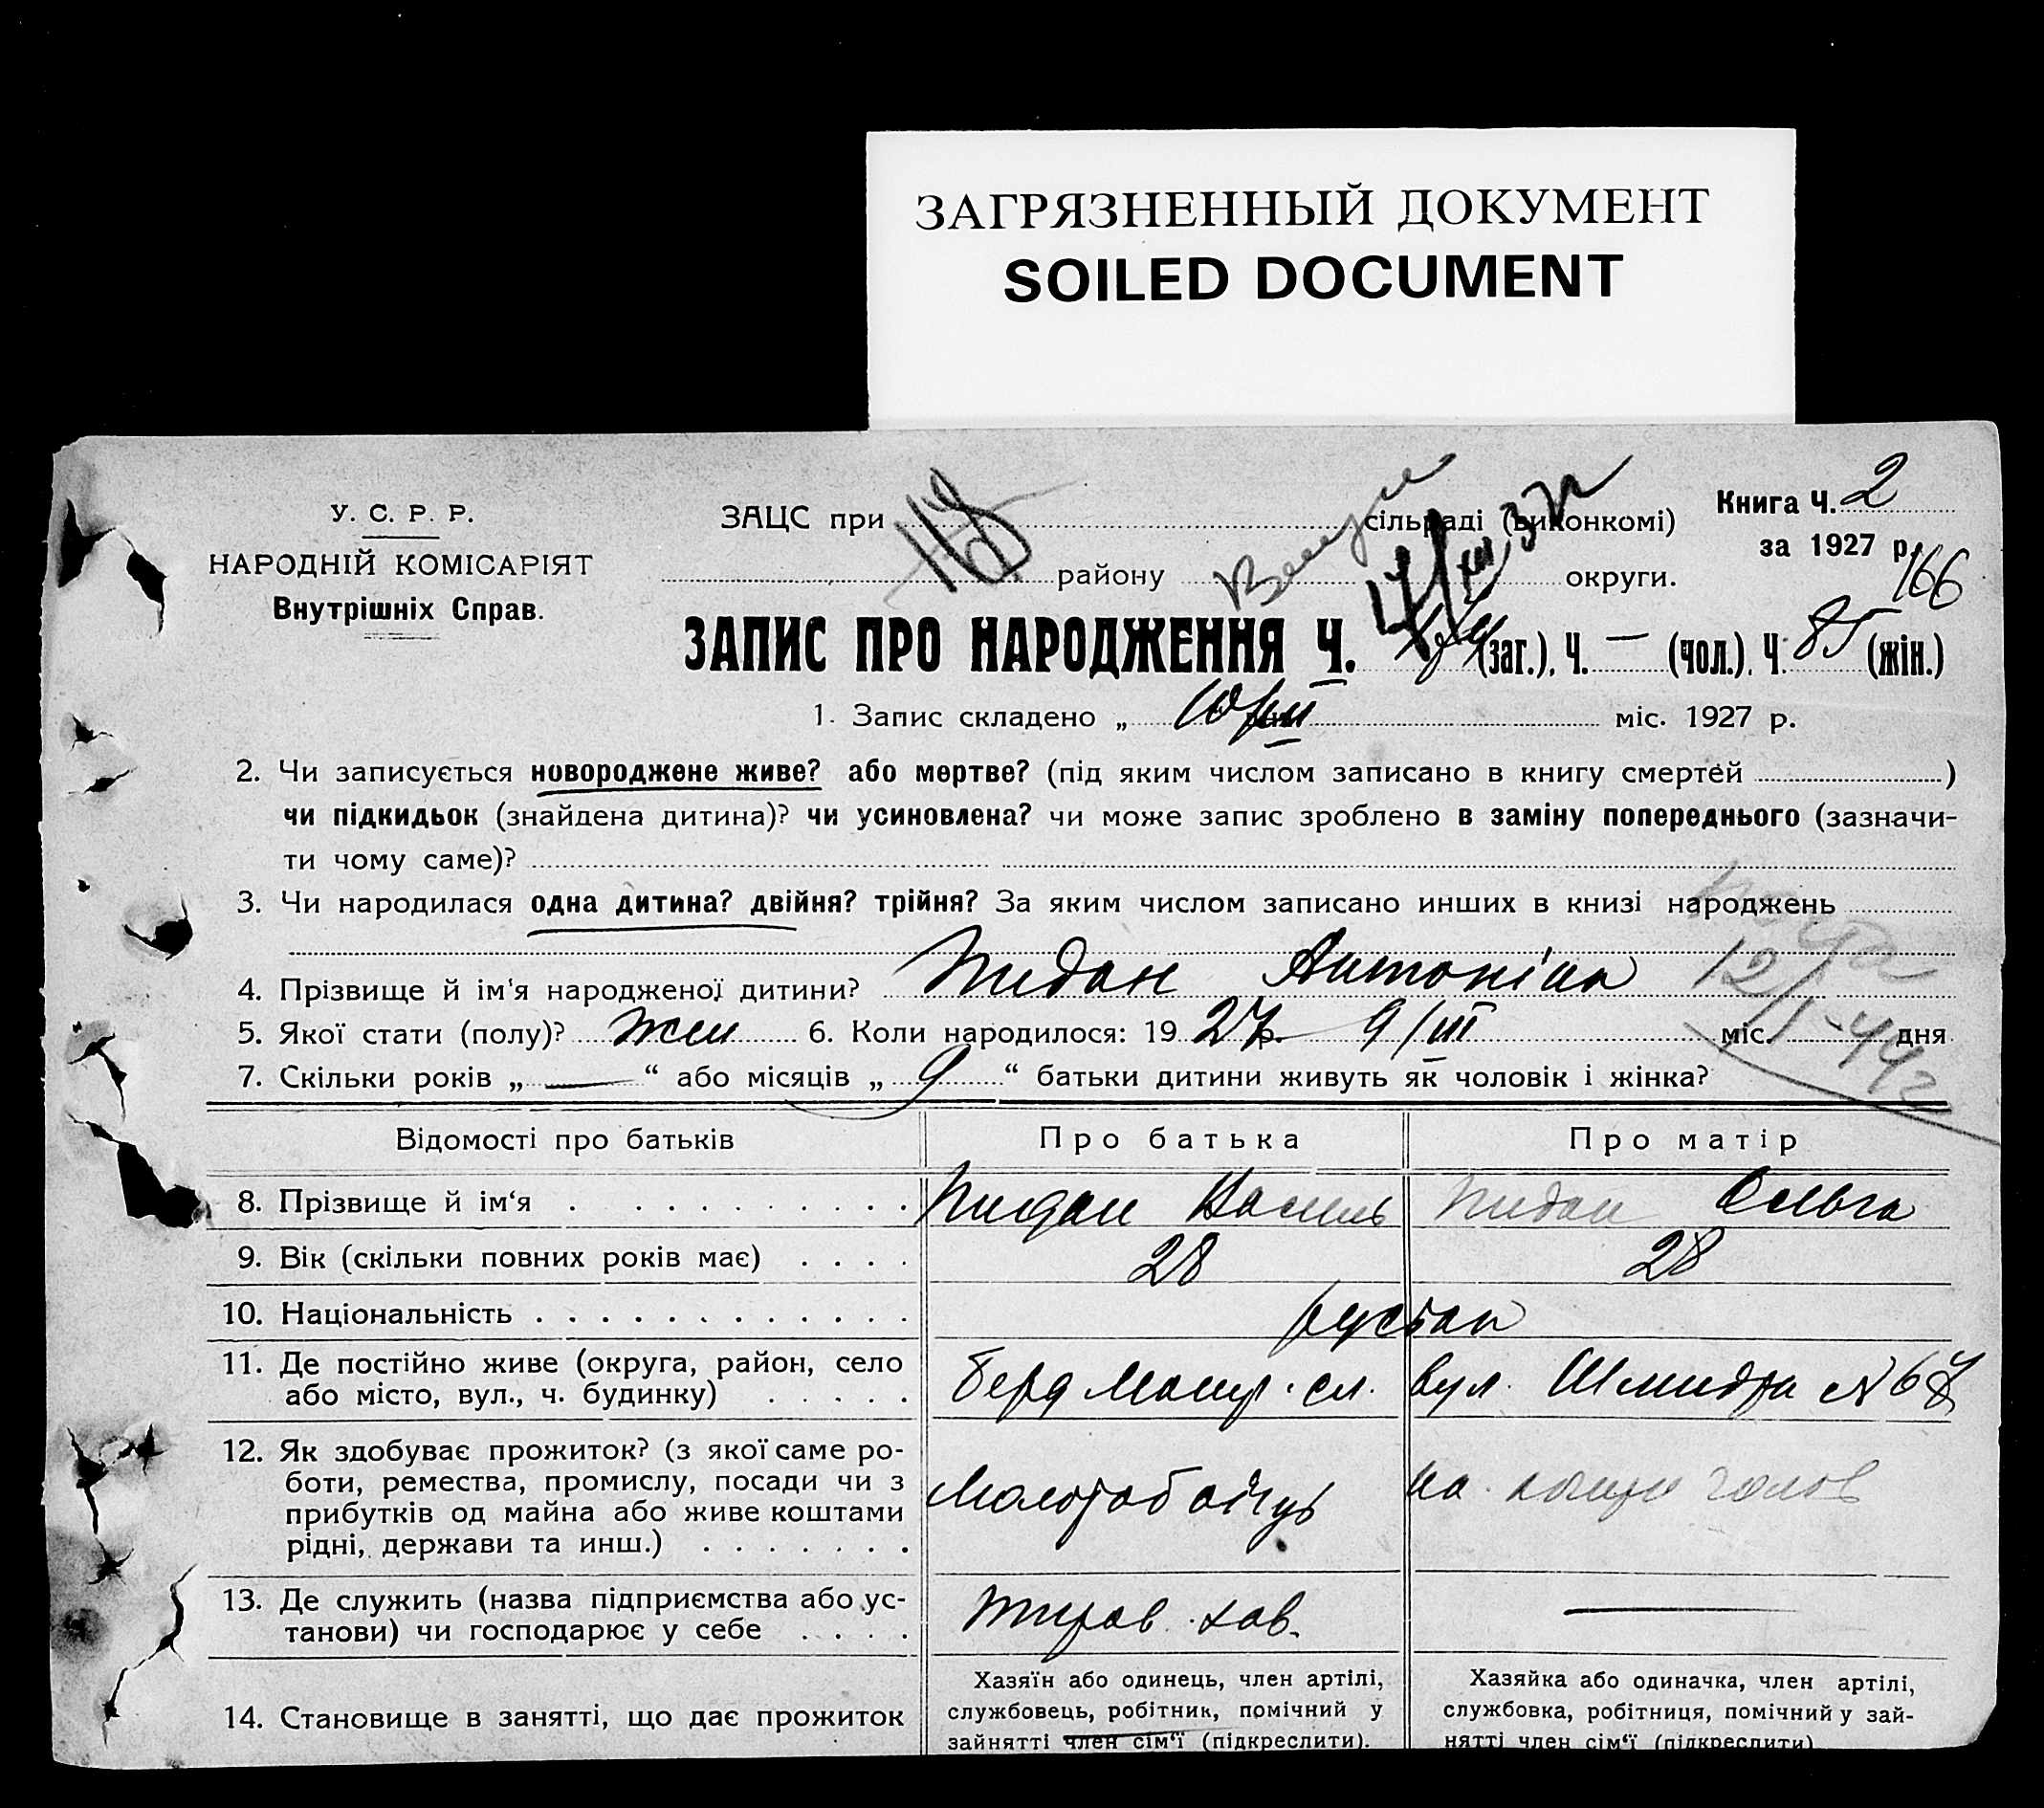 ЗАГРЯЗНЕННЫЙ ДОКУМЕНТ
SOILED DOCUMENT
У. С. Р. Р.
НАРОДНІЙ КОМІСАРІЯТ
Внутрішніх Справ.
ЗАЦС при сільраді (виконкомі)
району округи.
Книга Ч. 2
за 1927 р.
166
ЗАПИС ПРО НАРОДЖЕННЯ Ч. (заг.), Ч. — (чол.), Ч. 85 (жін.)
1. Запис складено „ 10/III міс. 1927 р.
2. Чи записується новороджене живе? або мертве? (під яким числом записано в книгу смертей )
чи підкидьок (знайдена дитина)? чи усиновлена? чи може запис зроблено в заміну попереднього (зазначи-
ти чому саме)?
3. Чи народилася одна дитина? двійня? трійня? За яким числом записано инших в книзі народжень
4. Прізвище й ім'я народженої дитини? Антоніна
5. Якої стати (полу)? жен 6. Коли народилося: 19 27 р. 9/III міс. дня
12/I-44г
7. Скільки років „ — “ або місяців „ 9 “ батьки дитини живуть як чоловік і жінка?
Відомості про батьків Про батька Про матір
8. Прізвище й ім‘я Василь Ольга
9. Вік (скільки повних років має) 28 28
10. Національність
11. Де постійно живе (округа, район, село
або місто, вул., ч. будинку) Берд вул. Шмидта №
12. Як здобуває прожиток? (з якої саме ро-
боти, ремества, промислу, посади чи з
прибутків од майна або живе коштами
рідні, держави та инш.) Молотобоєць на
13. Де служить (назва підприємства або ус-
танови) чи господарює у себе —
14. Становище в занятті, що дає прожиток
Хазяїн або одинець, член артілі,
службовець, робітник, помічний у
зайнятті член сім‘ї (підкреслити).
Хазяйка або одиначка, член артілі,
службовка, робітниця, помічний у зай-
нятті член сім‘ї (підкреслити)